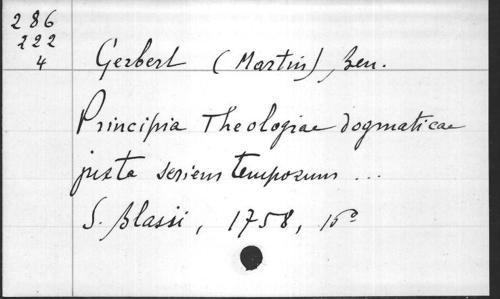 286
222
4
Gerbert (Martin), Ben.
Principia Theologiae dogmaticae
juxta seriem temporum ...
S. Blasii, 1758, in